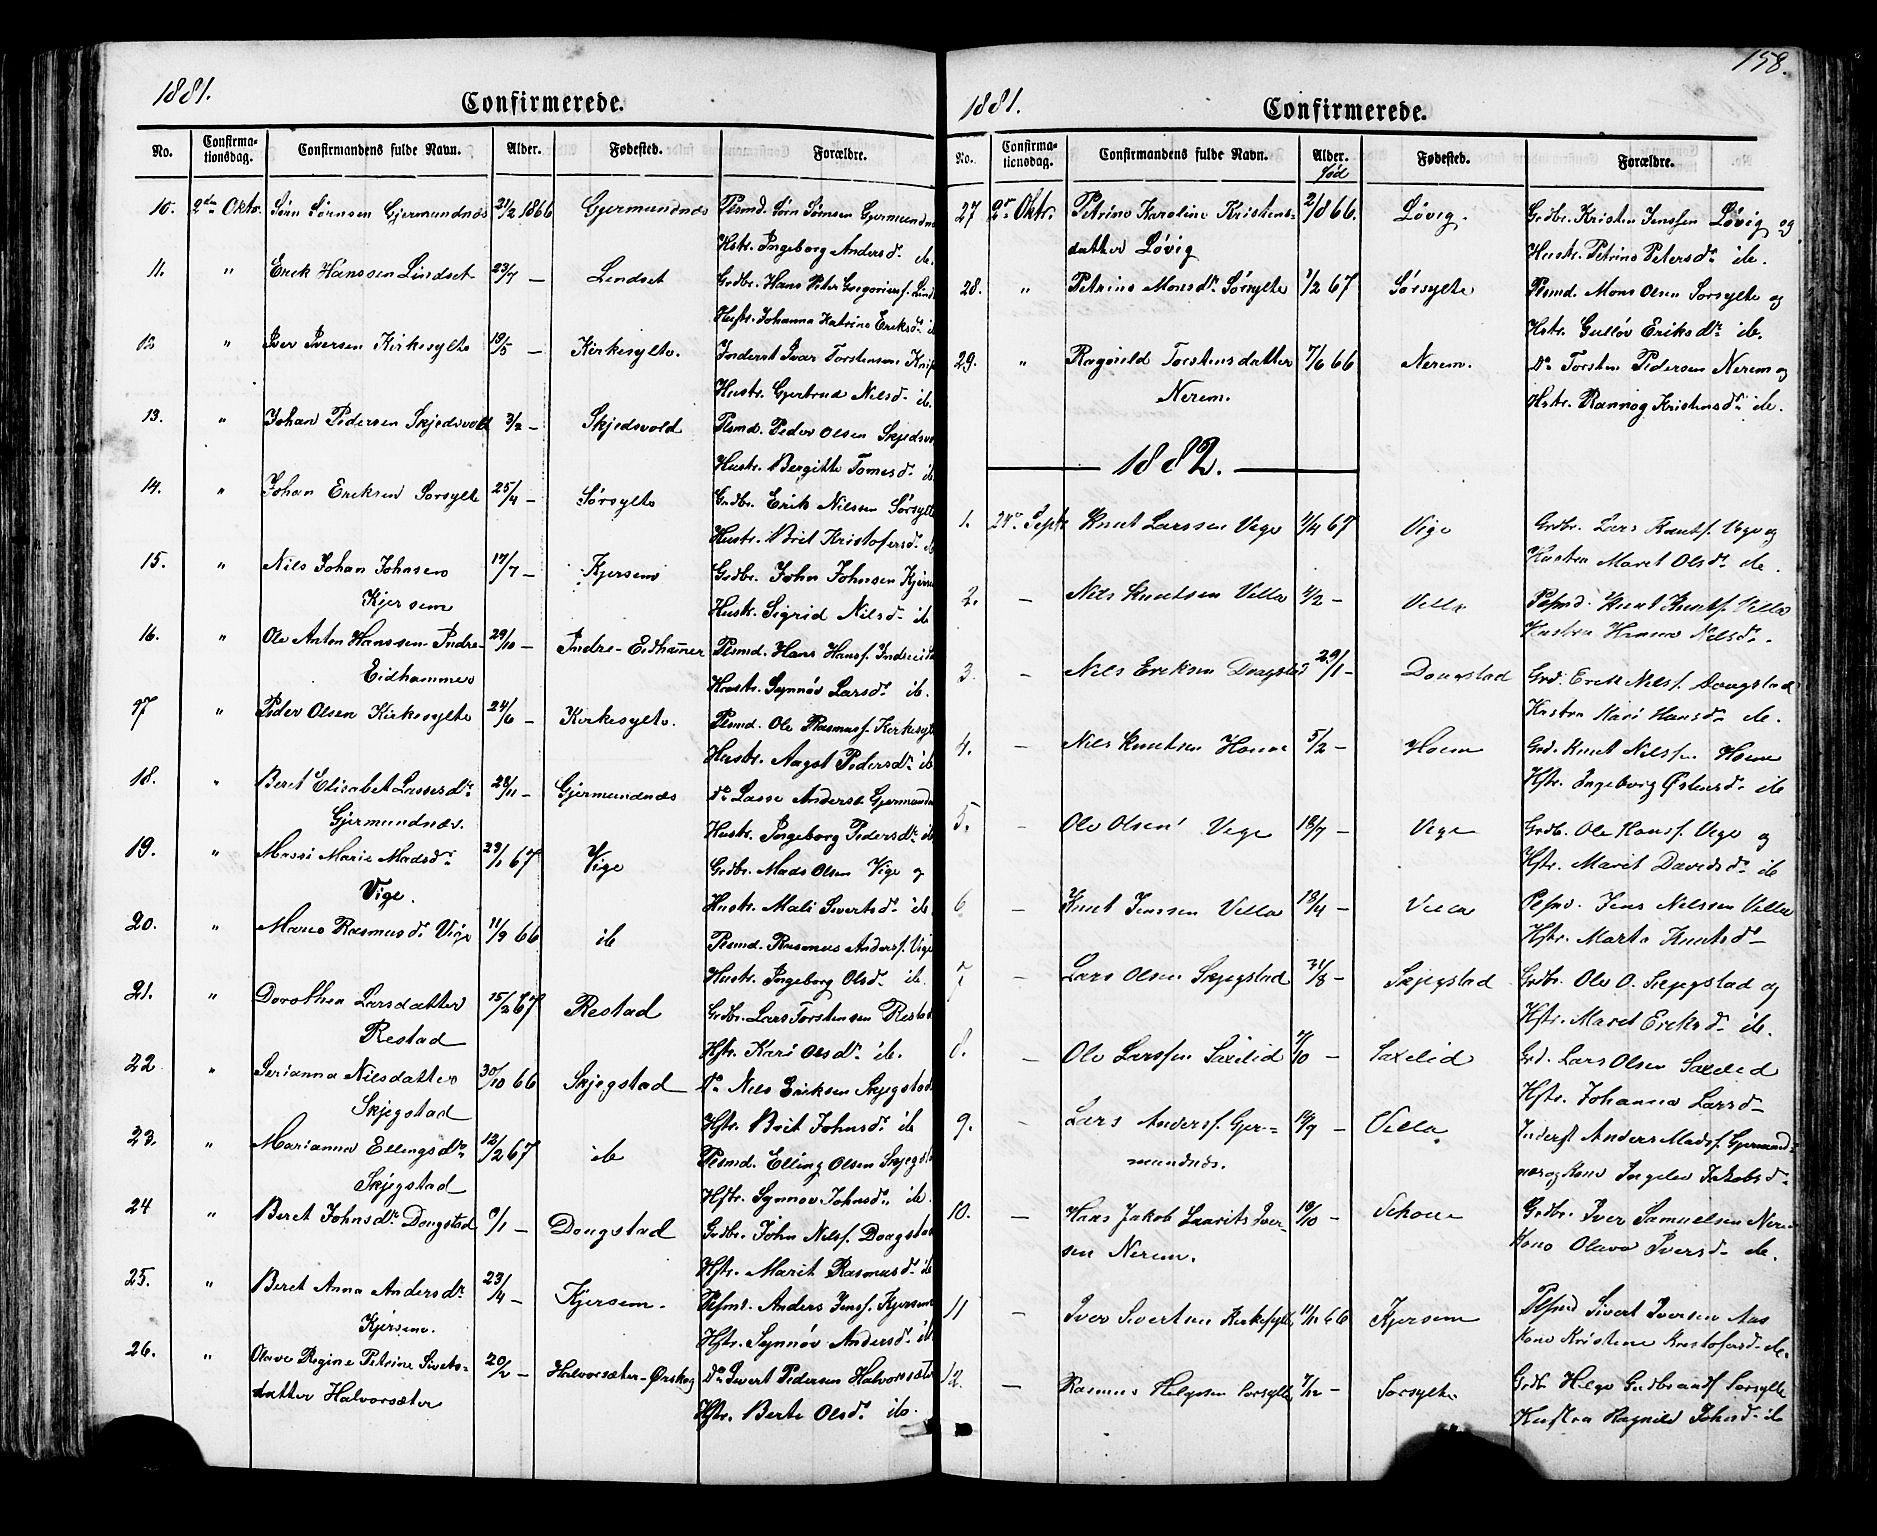 1881.
Confirmerede.
No. Confirma-tionsdag. Confirmandens fulde Navn. Alder. Fødested. Forældre.
10. 2den Oktr. Sørn Sørnsen Gjermundnæs 21/2 1866 Gjermundnæs Plsmd. Sørn Sørnsen Gjermundn
Hstr. Ingeborg Andersdr. ib.
11. " Erik Hanssen Lindset 23/7 — Lindset Grdbr. Hans Peter Gregoriusf. Lind
Hustr. Johanna Katrine Eriksdr. ib
12 " Iver Iversen Kirkesylte 19/5 — Kirkesylte. Inderst Ivar Torstensen
Hustr. Gjertrud Nilsdr. ib.
13. " Johan Pedersen Skjedsvold 3/2 — Skjedsvold Plsmd. Peder Olsen Skjedsv
Hustr. Bergitte Tomesdr. ib
14. " Johan Eriksen Sørsylte 25/4 — Sørsylte Grdbr. Erik Nilsen Sørsylte
Hustr. Brit Kristofersdr. ib
15. " Nils Johan Johnsen 17/7 — Kjersem Grdbr. John Johnsen Kjers
Kjersem Hustr. Sigrid Nilsdr. ib
16. " Ole Anton Hanssen Indre- 29/10 — Indre-Eidhammer Plsmd. Hans Hansf. Indreeid
Eidhammer Hustr. Synnøv Larsdr. ib.
17 " Peder Olsen Kirkesylte 24/6 — Kirkesylte. Plsmd. Ole Rasmusf. Kirkesyl
Hustr. Aagot Pedersdr. ib
18. " Beret Elisabet Lassesdr. 28/11 — Gjermundnæs do. Lasse Anders. Gjermundn
Gjermundnæs. Hustr. Ingeborg Pedersdr. ib
19. " Massi Marie Madsdr. 29/1 67 Vige Grdbr. Mads Olsen Vige og
Vige. Hustr. Mali Sivertsdr. ib.
20. " Maren Rasmusdr. Vige 11/9 66 ib Plsmd. Rasmus Andersf. Vige
Hustr. Ingeborg Olsdr. ib.
21. " Dorothea Larsdatter 15/2 67 Restad Grdbr. Lars Torstensen Resta
Restad Hstr. Kari Olsdr. ib.
22 " Serianna Nilsdatter 30/10 66 Skjegstad do. Nils Eriksen Skjegstad
Skjegstad Hstr. Brit Johnsdr. ib
23. " Marianna Ellingsdr. 12/2 67 ib Plsmd. Elling Olsen Skjegst
Skjegstad Hstr. Synnøv Johnsdr. ib.
24 " Beret Johnsdr. Dougstad 8/1 — Dougstad Grdbr. John Nilsf. Dougstad
Hstr. Marit Rasmusdr. ib
25. " Beret Anna Andersdr. 23/4 — Kjersem. Plsmd. Anders Jensf. Kjersem
Kjersem. Hstr. Synnøv Andersdr. ib
26. " Olave Regine Petrine Sivets- 20/2 — Halvorsæter-Ørskog do. Sivert Pedersen Halvorsæte
datter Halvorsæter Hstr. Berte Olsdr. ib.
158.
1881.
Confirmerede.
No. Confirma-tionsdag. Confirmandens fulde Navn. Alder. Fødested. Forældre.
fød
27 2dr Oktr. Petrine Karoline Kristens- 2/8 66. Løvig. Grdbr. Kristen Jenssen Løvig og
datter Løvig Hustr. Petrine Petersdr. ib.
28. " Petrine Monsdr. Sørsylte 1/2 67 Sørsylte Plsmd. Mons Olsen Sørsylte og
Hstr. Gulløv Eriksdr. ib.
29. " Ragnild Torstensdatter 7/6 66 Nerem. do. Torsten Pedersen Nerem og
Nerem. Hstr. Rannog Kristensdr. ib.
1882.
1. 24de Septr Knut Larssen Vige 1/4 67 Vige Grdbr. Lars Knutsf. Vige og
Hustru Maret Olsdr. ib.
2. — Nils Knutsen Villa 4/2 — Villa Plsmd. Knut Knutsf. Villa
Hustru Hanna Nilsdr.
3. — Nils Eriksen Dougstad 29/1 — Dougstad Grd. Erik Nilsf. Dougstad
Hustru Kari Hansdr. ib.
4. — Nils Knutsen Hoem 5/2 — Hoem Grd. Knut Nilssen Hoem
Hstr. Ingeborg Østensdr. ib
5. — Ole Olsen Vige 18/7 — Vige Grdb. Ole Hansf. Vige og
Hstr. Marit Davidsdr. ib
6 — Knut Jenssen Villa 13/4 — Villa Jens Nilssen Villa
Hstr. Marta Knutsdr
7 — Lars Olsen Skjegstad 31/8 — Skjegstad Grdbr. Ole O. Skjegstad og
Hstr. Maret Eriksdr. ib.
8. — Ole Larssen Saxelid /10 — Saxelid Grd. Lars Olsen Saxelid
Hstr. Johanna Larsd
9. — Lars Andersf. Gjer- /9 — Villa Inderst Anders Madsf. Gjermund-
mundnæs. næs og Kone Ingelev Jakobsd
10. — Hans Jakob Laurits Iver- 19/10 — Grdbr. Iver Samuelsen Nerem
sen Nerem. Kone Olava Iversdr. ib.
11 — Iver Sivertsen Kirkesylte 11/11 66 Kjersem Plsmd Sivert Iversen Aas
Kone Kristine Kristofersd. ib.
12. — Rasmus Helgesen Sørsylte 7/12 — Sørsylte Grdb. Helge Gudbrandsf Sørsylte
Hustru Ragnild Johnsdr. ib